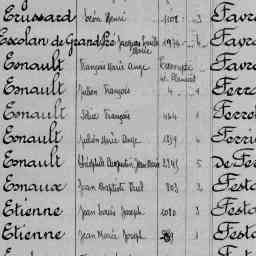 Erussard Léon Henri 1108 3 Favr
Escolan de Grandpré Jacques Emile Marie 1974 4 Favr
Esnault François Marie Ange Favr
Esnault Julien François 4 1 Ferr
Esnault Pierre François 464 1 Ferre
Esnault Julien Marie Ange 1859 4 Ferri
Esnault Théophile Augustin Jean Marie 2345 5 De Fes
Esnaux Jean Baptiste Paul 803 2 Festo
Etienne Jean Louis Joseph 1080 3 Festo
Etienne Jean Marie Joseph 1 Festo